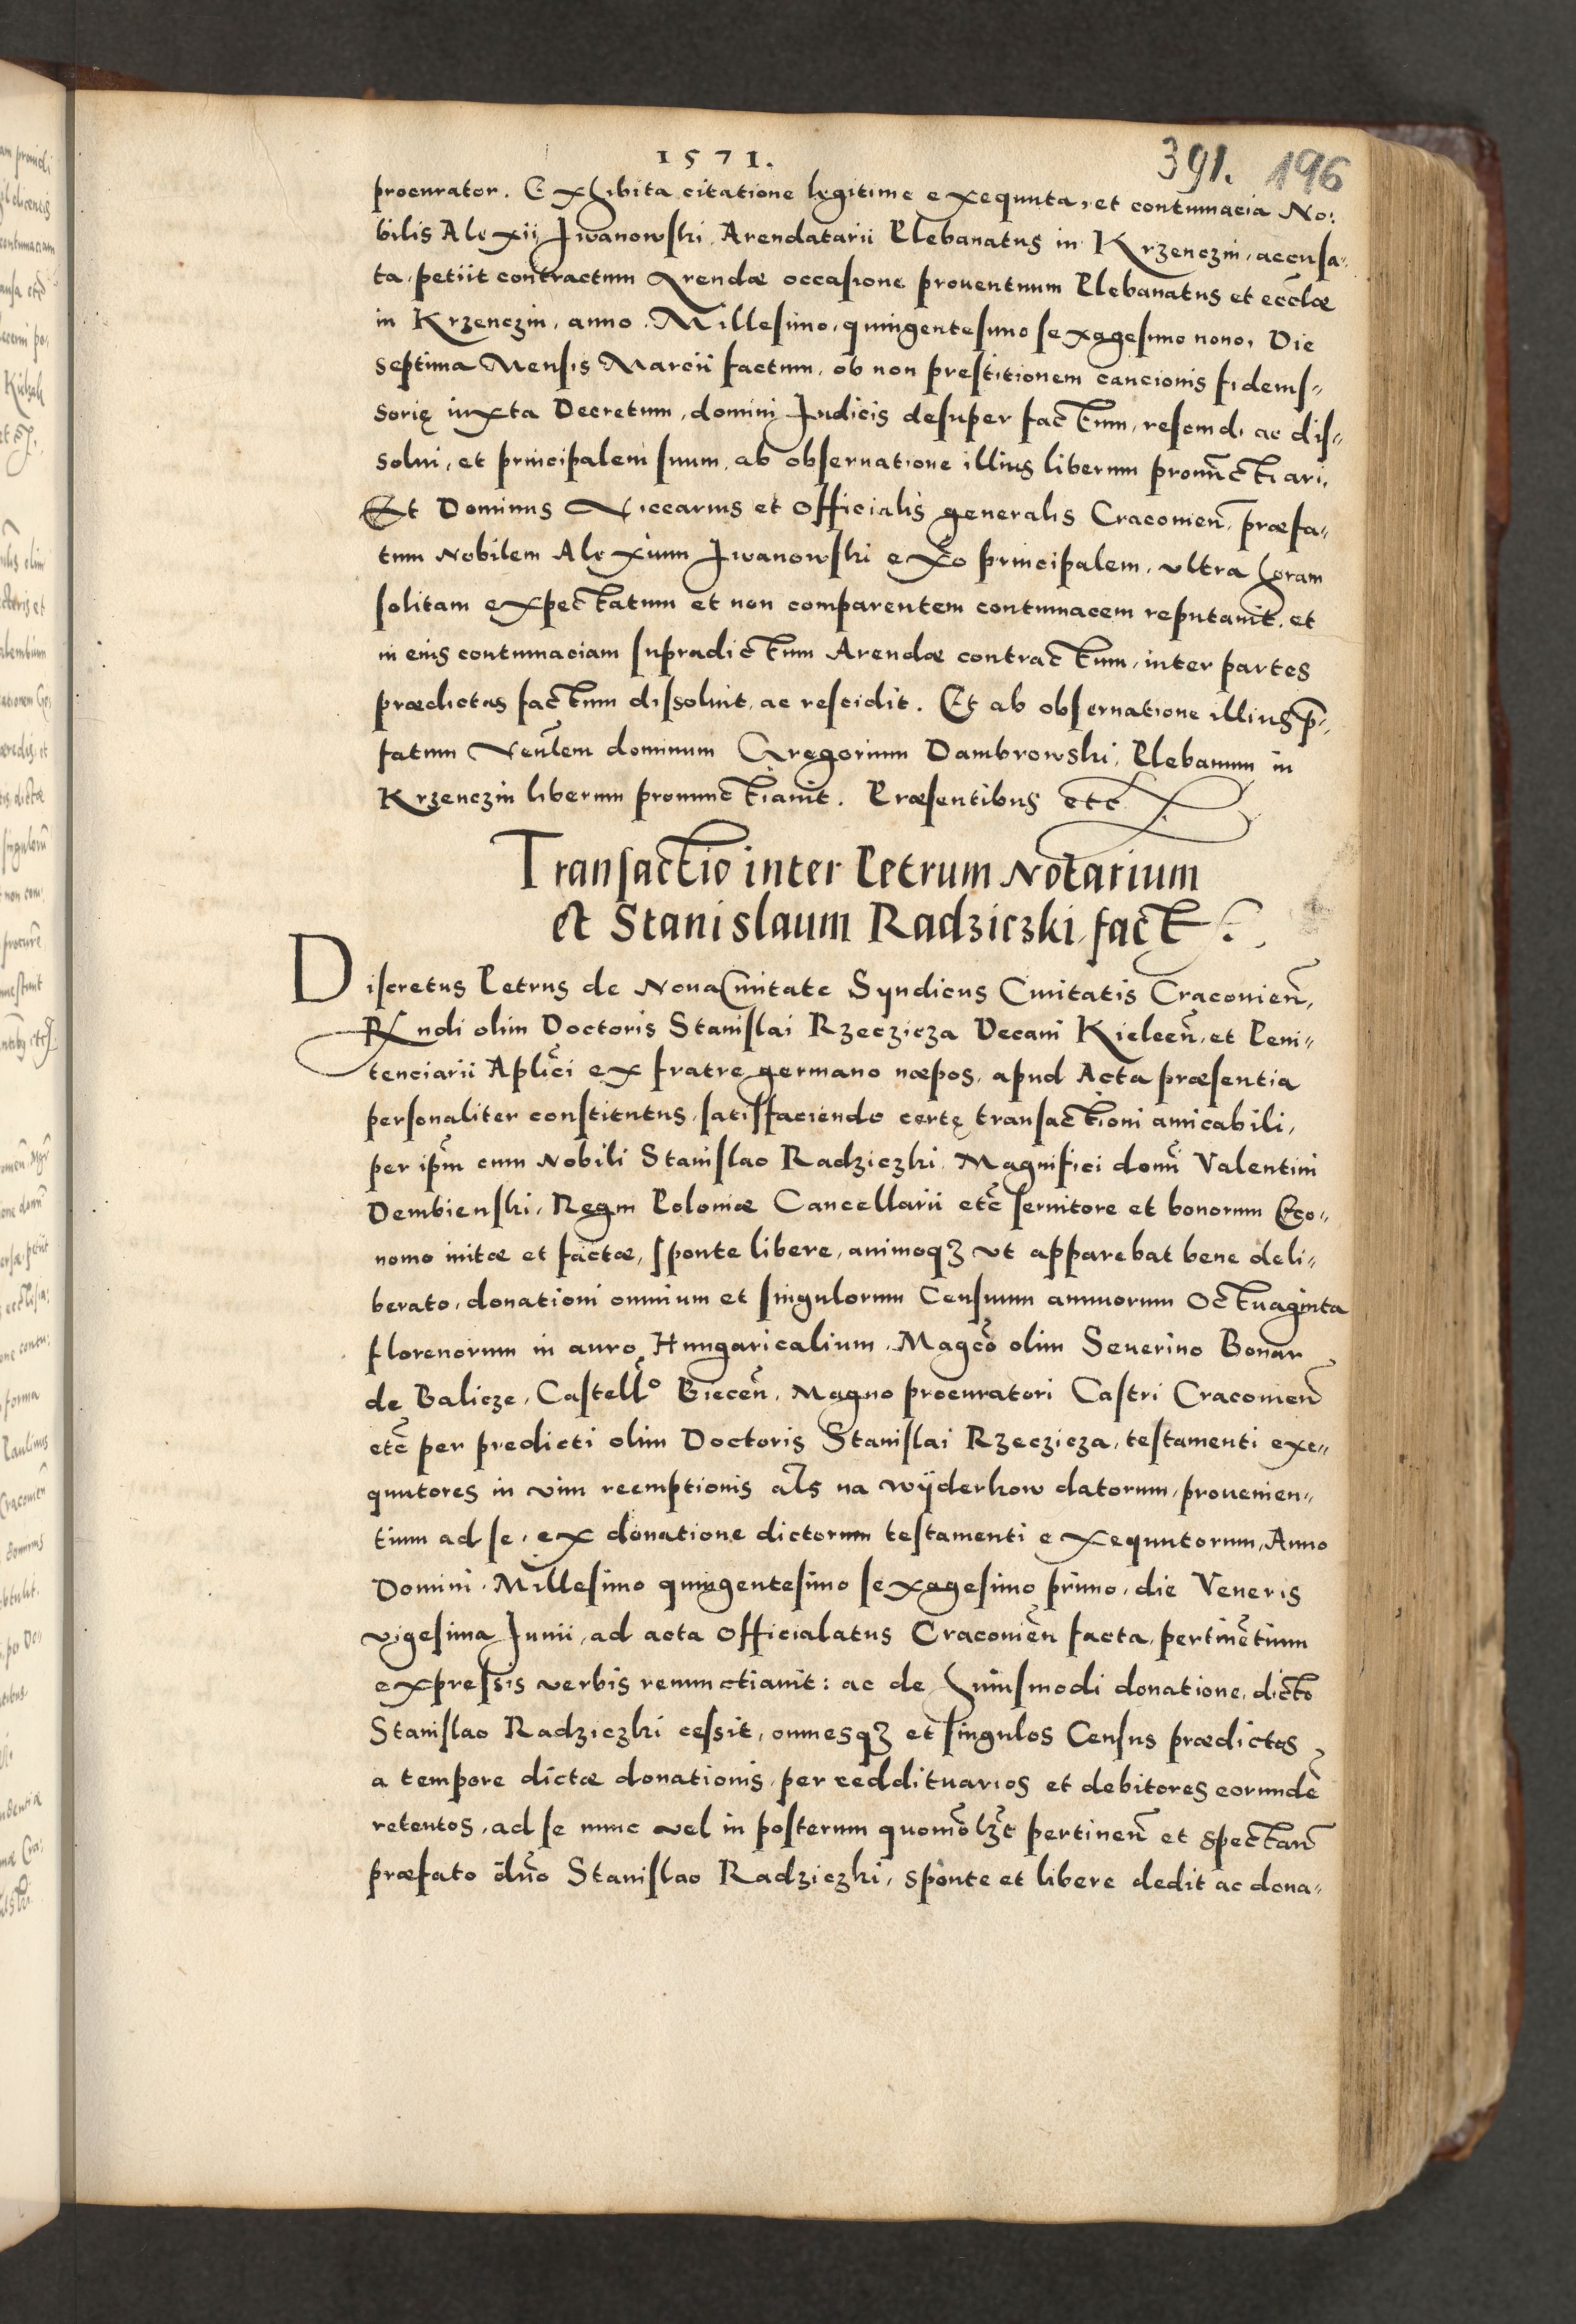 1571.
391. 196
procurator. Exhibita citatione legitime exequuta, et contumacia No:
bilis Alexii Jwanowski, Arendatarii Plebanatus in Krzenczin, accusa-
ta, petiit contractum Arendæ occasione prouentuum Plebanatus et eccłæ
in Krzenczin, anno Millesimo, quingentesimo sexagesimo nono, Die
septima Mensis Marcii factum, ob non prestitionem caucionis fideius-
sorię iuxta Decretum, domini Judicis desuper factum, rescindi ac dis-
solui, et principalem suum, ab obseruatione illius liberum pronūctiari.
Et Dominus Viccarius et Officialis generalis Cracouien̄, præfa-
tum Nobilem Alexium Jwanowski exco principalem, vltra horam
solitam expectatum et non comparentem contumacem reputauit, et
in eius contumaciam supradictum Arendæ contractum, inter partes
prædictas factum dissoluit, ac rescidit. Et ab obseruatione illius p̄-
fatum Veńlem dominum Gregorium Dambrowski, Plebanum in
Krzenczin liberum pronunctiauit. Præsentibus etc
Transactio inter Petrum Notarium
et Stanislaum Radziczki fact
Discretus Petrus de Noua Ciuitate Syndicus Ciuitatis Cracouien̄,
Rńdi olim Doctoris Stanislai Rzeczicza Decani Kielcen̄, et Peni-
tenciarii Aplici ex fratre germano næpos, apud Acta præsentia
personaliter constitutus, satisfaciendo certę transactioni amicabili,
per ipm̄ cum Nobili Stanislao Radziczki, Magnifici domi Valentini
Dembienski, Regni Poloniæ Cancellarii etc̄ seruitore et bonorum Eco-
nomo initæ et factæ, sponte libere, animoqȝ vt apparebat bene deli-
berato, donationi omnium et singulorum Censuum annuorum Octuaginta
florenorum in auro Hungaricalium, Magco olim Seuerino Bonar
de Balicze, Castellº Biecen̄, Magno procuratori Castri Cracouien̄
etc̄ per predicti olim Doctoris Stanislai Rzeczicza, testamenti exe-
quutores in vim reemptionis als na wÿderkow datorum, prouenien-
tium ad se, ex donatione dictorum testamenti exequutorum, Anno
Domini Millesimo quingentesimo sexagesimo primo, die Veneris
vigesima Junii, ad acta Officialatus Cracouien̄ facta, pertinētium
expressis verbis renunctiauit: ac de huiusmodi donatione, dicto
Stanislao Radziczki cessit, omnesqȝ et singulos Census prædictos
a tempore dictæ donationis, per reddituarios et debitores eorundē
retentos, ad se nunc vel in posterum quomolȝt pertinen̄ et spectan̄
præfato dn̄o Stanislao Radziczki, sponte et libere dedit ac dona-